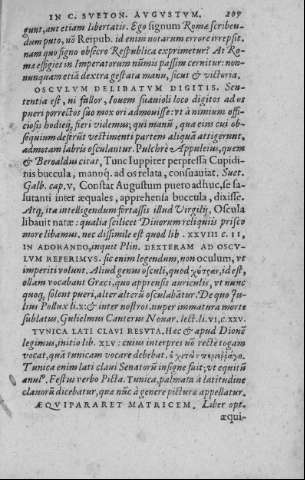 IN C. SVETON. AVGVSTVM. 209
gunt, ant etiam libertatis. Ego signum Romæ scriben-
dum puto, uô Reipub. id enim uotarum errore irrepsit.
nam quo signo obsecro Respublica exprimetur? At Ro-
ma effigies in Imperatorum numis passim cernitur: non-
nunquam etiã dextra gestata manu, sicut & uictoria.
OSCVLVM DELIBATVM DIGITIS. Sen-
tentia est, ni fallor, Iouem suauioli loco digitos ad os
pueri porrectos suo mox ori admouisse: ut à nimium offi-
ciosis hodieq́; fieri uidemus; qui manũ, qua eius cui ob-
sequium destinãt uestimenti partem aliquã attigerunt,
admotam labris osculantur. Pulchrè Appuleius, quem
& Beroaldus citat, Tunc Iuppiter perpressa Cupidi-
nis buccula, manoq́. ad os relata, consauiat. Suet.
Galb. cap. v, Constat Augustum puero adhuc, se sa-
lutanti inter æquales, apprehensa buccula, dixisse.
Atq́; ita intelligendum fortassis illud Virgilij, Oscula
libauit natæ: qualia scilicet Diuorum religiosis prisco
more libamina, nec dissimile est quod lib. XXVIII. C. II,
IN ADORANDO, inquit Plin. DEXTERAM AD OSCV-
LVM REFERIMVS. sic enim legendum, non oculum, ut
imperiti uolunt. Aliud genus osculi, quod χύτρας, id est,
ollam uocabant Græci, quo apprensis auriculis, ut nunc
quoq́, solent pueri, alter alterũ osculabãtur. De quo Iu-
lius Pollux li. x: & inter nostros, nuper immatura morte
sublatus, Gulielmus Canterus Nouar. lect. li. VI, c. XXV.
TVNICA LATI CLAVI RESVTA. Hac & apud Dionẽ
legimus, initio lib. XLV: cuius interpres uõ rectè togam
uocat, quã tunicam uocare debebat.
Tunica enim lati claui Senatorũ insigne fuit; ut equitũ
anulꝰ. Festus verbo Picta. Tunica, palmata à latitudine
clauorũ dicebatur, qua nũc à genere picturæ appellatur.
ÆQVIPARARET MATRICEM. Liber opt.
æqui-